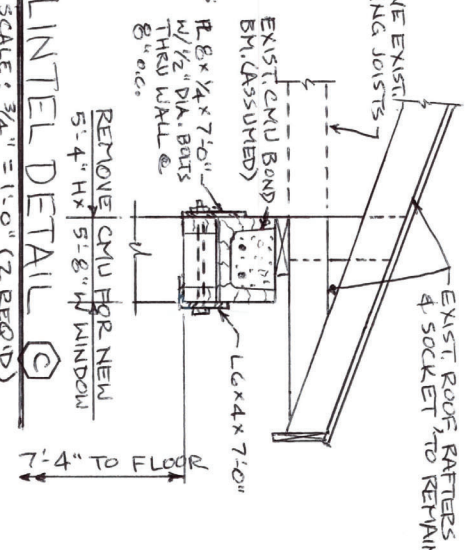 NE EXIST.
NG JOISTS
EXIST. ROOF RAFTERS
& SOCKET, TO REMAIN
EXIST. CMU BOND
BM. (ASSUMED)
PL 8 x 1/4 x 7'-0"
W/ 1/2" DIA. BOLTS
THRU WALL @
8" O.C.
L6x4x7'-0"
REMOVE CMU FOR NEW
5'-4" H x 5'-8" W WINDOW
7'-4" TO FLOOR
LINTEL DETAIL C
SCALE: 3/4" = 1'-0" (2 REQ'D)